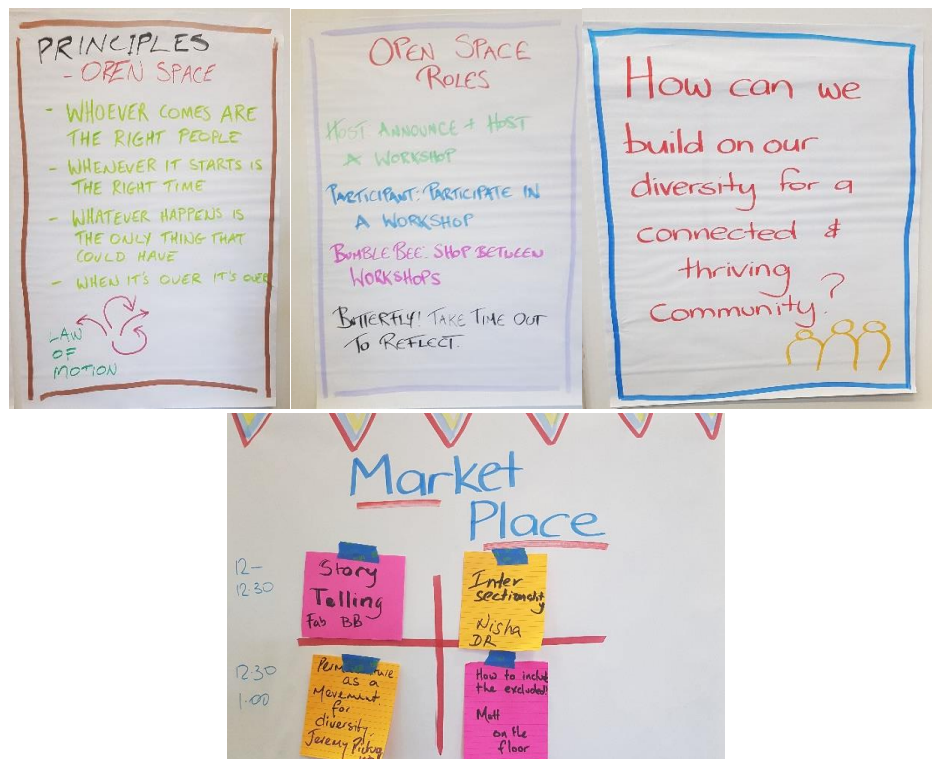 PRINCIPLES
- OPEN SPACE
- WHOEVER COMES ARE
THE RIGHT PEOPLE
- WHENEVER IT STARTS IS
THE RIGHT TIME
- WHATEVER HAPPENS IS
THE ONLY THING THAT
COULD HAVE
- WHEN IT'S OVER IT'S OVER
LAW
OF
MOTION
OPEN SPACE
ROLES
HOST ANNOUNCE + HOST
A WORKSHOP
PARTICIPANT: PARTICIPATE IN
A WORKSHOP
BUMBLE BEE: SHOP BETWEEN
WORKSHOPS
BUTTERFLY! TAKE TIME OUT
TO REFLECT.
How can we
build on our
diversity for a
connected &
thriving
community?
Market
Place
12-
12.30
Story
Telling
Fab BB
Inter
sectionality
Nisha
DR
12.30
1.00
as a
Movement
for
diversity.
Jeremy
How to include
the excluded!
Matt
on the
floor